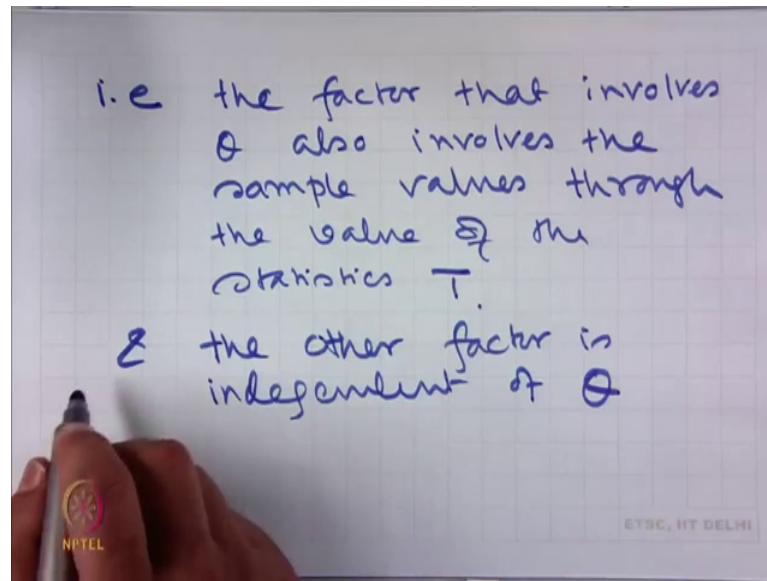 i.e the factor that involves
θ also involves the
sample values through
the value of the
statistics T.
& the other factor is
independent of θ
ETSC, IIT DELHI
NPTEL